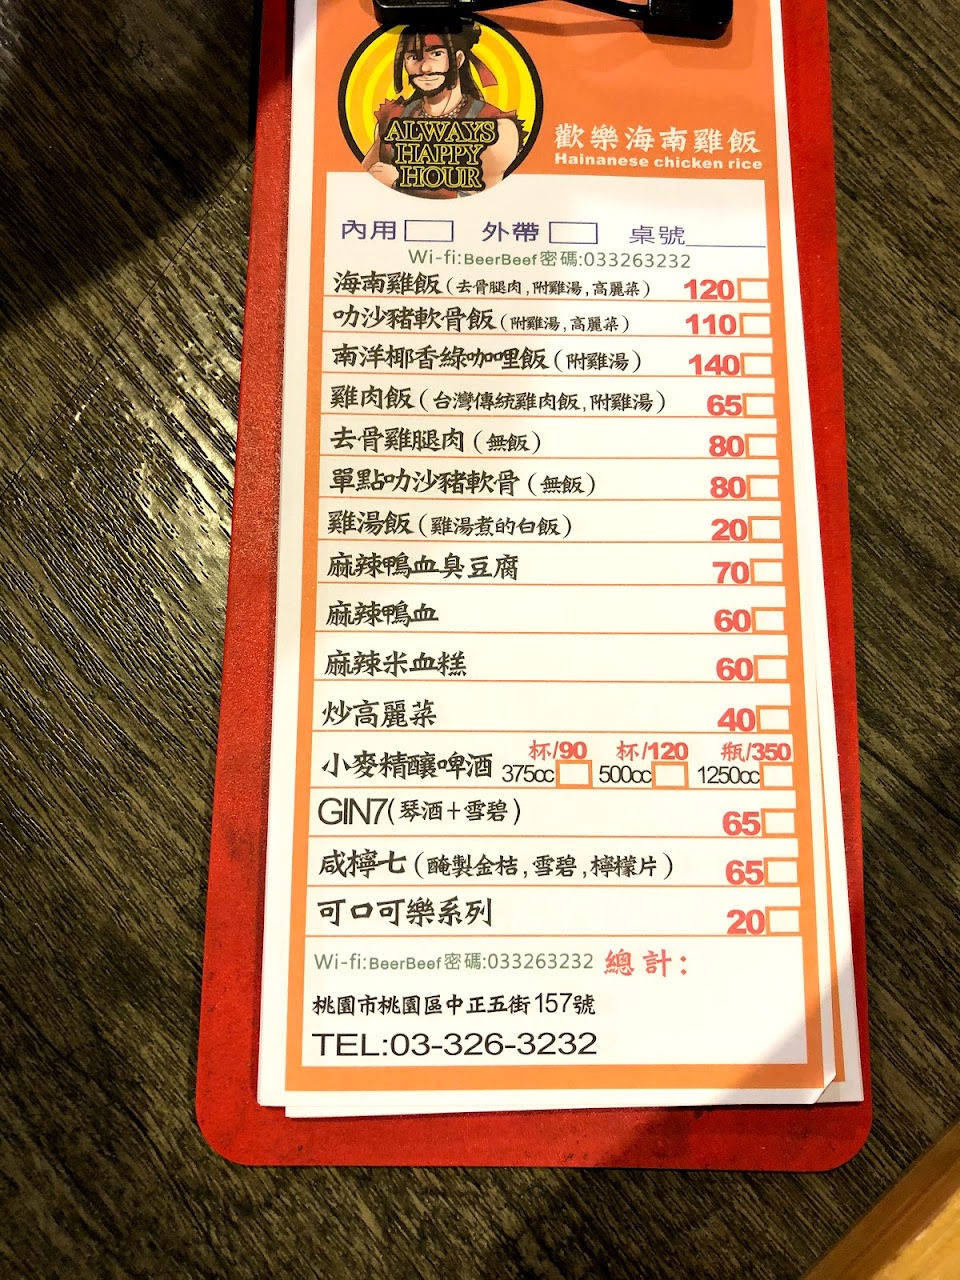 ALWAYS
HAPPY
HOUR
歡樂海南雞飯
Hainanese chicken rice
內用 外帶 桌號
Wi-fi:BeerBeef密碼:033263232
海南雞飯(去骨腿肉,附雞湯,高麗菜) 120
叻沙豬軟骨飯(附雞湯,高麗菜) 110
南洋椰香綠咖哩飯(附雞湯) 140
雞肉飯(台灣傳統雞肉飯,附雞湯) 65
去骨雞腿肉(無飯) 80
單點叻沙豬軟骨(無飯) 80
雞湯飯(雞湯煮的白飯) 20
麻辣鴨血臭豆腐 70
麻辣鴨血 60
麻辣米血糕 60
炒高麗菜 40
杯/90 杯/120 瓶/350
小麥精釀啤酒 375cc 500cc 1250cc
GIN7(琴酒+雪碧) 65
咸檸七(醃製金桔,雪碧,檸檬片) 65
可口可樂系列 20
Wi-fi:BeerBeef密碼:033263232 總計:
桃園市桃園區中正五街157號
TEL:03-326-3232